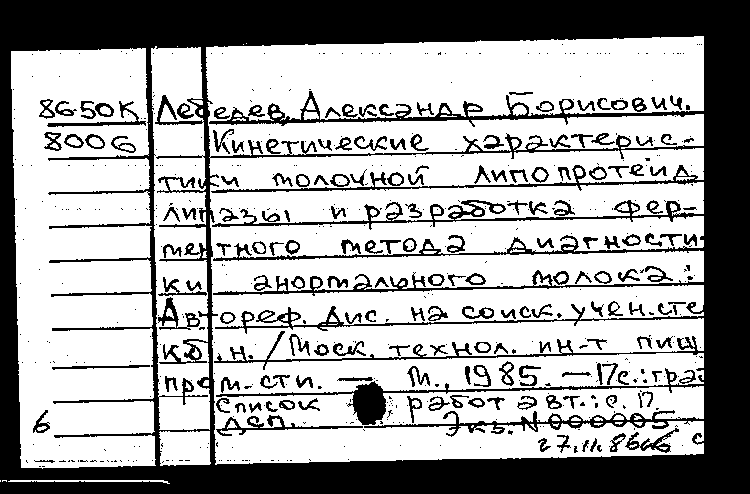 8650К Лебедев, Александр Борисович.
8006 Кинетические характерис-
тики молочной липопротеид
липазы и разработка фер-
ментного метода диагности-
ки анормального молока:
Автореф. дис. на соиск. учен. сте
к.б.н. / Моск. технол. ин-т пищ
пром-сти. — М., 1985. — 17с.: граф
Список работ авт.: с. 17
6 ДСП. Экз. N 000005.
27.11.86